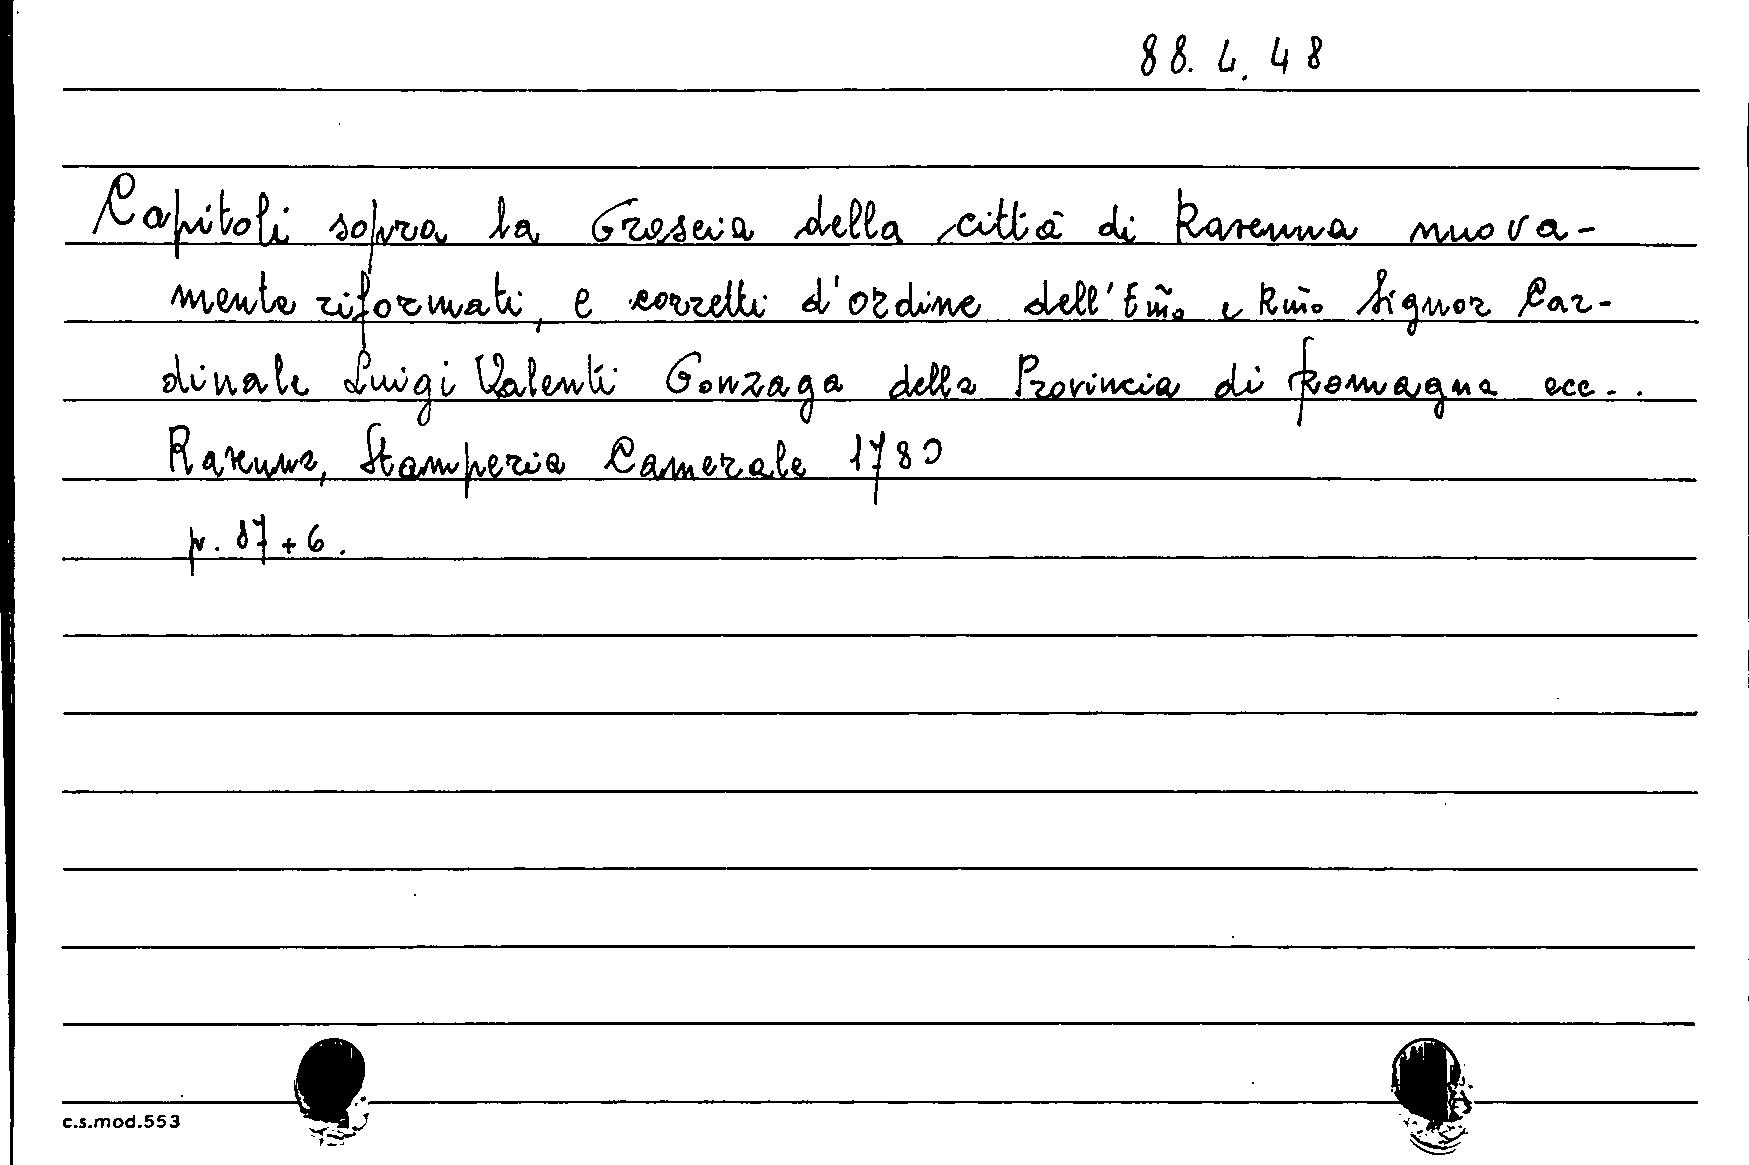 88. L. 48
Capitoli sopra la Grascia della città di Ravenna nuova-
mente riformati, e corretti d'ordine dell'Em̃o e Rm̃o Signor Car-
dinale Luigi Valenti Gonzaga della Provincia di Romagna ecc..
Ravenna, Stamperia Camerale 1780
p. 87 + 6.
c.s.mod.553